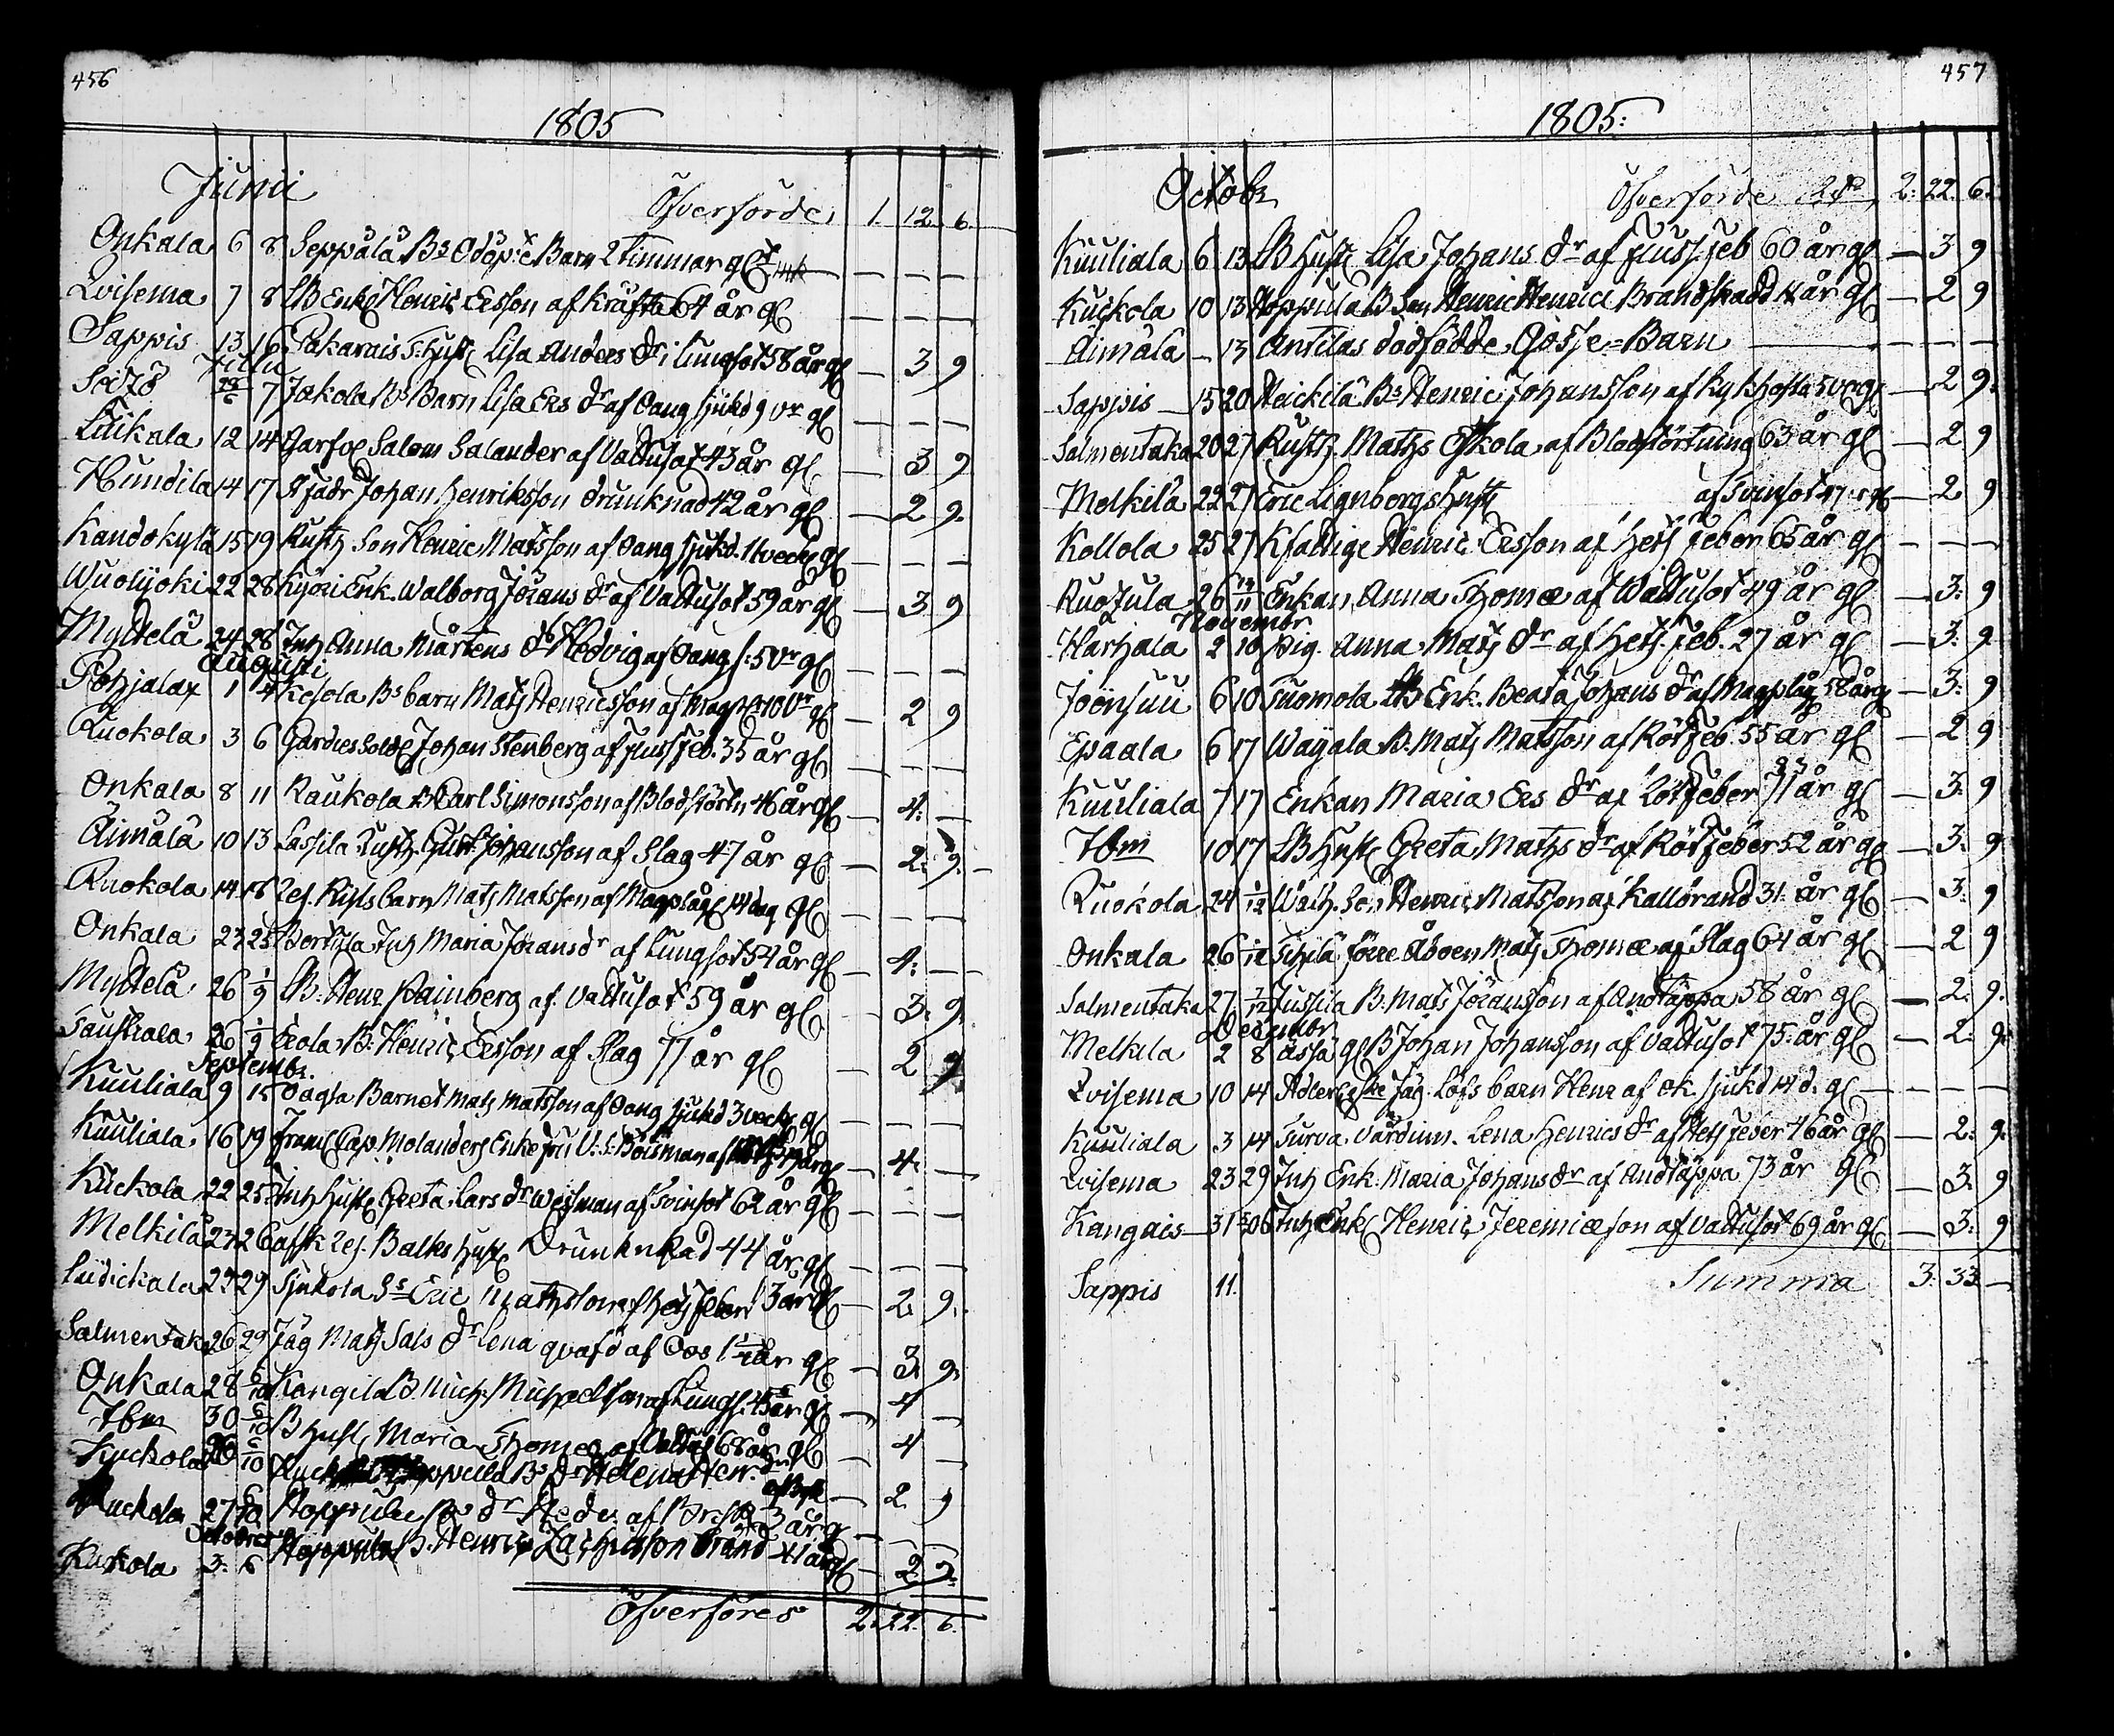 456
1805
Junii
Öfverförde 1. 12. 6.
Onkala 6 8 Seppälä Bs Odöpte Barn 2 timmar gl — — —
Qvisema 7 8 SB Enkl Henric Ersson af Kräfta 64 år gl — — —
Sappis 13 16 Pakarais T. Hust Lisa Anders dr i Lungsot 58 år gl — 3 9
Julii
7 Jakola Bs Barn Lisa Ers dr af Oang sjukd 9 vr gl — — —
Luikala 12 14 Salom Salander af Vattusot 43 år gl — 3 9
Hundila 14 17 Johan Henriksson drunknad 42 år gl — 2 9.
Kandokylä 15 19 Rusth Son Henric Matsson af Oang sjukd. 11 veck gl — — —
Wuolijoki 22 28 Kyöri Enk. Walborg Jörans dr af Vattusot 59 år gl — 3 9
Myttelä 24 28 Inh Anna Mårtens dr Hedvig af Oang s: 5 vr gl — — —
Augusti
Pohjalax 1 4 Kesola Bs barn Mats Henricsson af Magplåg 10 vr gl — 2 9
Ruokola 3 6 Gardes Sold Johan Stenberg af fluss feb. 35 år gl — — —
Onkala 8 11 Raukola B Carl Simonsson af Blodstörtn 46 år gl — 4. —
Äimälä 10 13 Lassila Rusth. Johansson af Slag 47 år gl — 2. 9. —
Ruokola 14 18 barn Mats Matsson af Magplåg 14 dag gl — — —
Onkala 23 25 Inh Maria Jöransdr af Lungsot 54 år gl — 4. —
Myttelä 26 1/9 SB. Henr Painberg af Vattusot 59 år gl — 3. 9.
Sauthiala 26 1/9 Erola B. Henric Ersson af Slag 77 år gl — 2 9
Septembr.
Kuuliala 9 15 Oägta Barnet Mats Matsson af Oang sjukd 3 veck gl — — —
Kuuliala 16 19 Cap. Molanders Enke fru U: S: Böisman af år gl — 4. —
Kuckola 22 25 Inh Hust Greta Lars dr Westman af Tvinsot 62 år gl — — —
Melkilä 23 26 afsk Balks hust Drunknad 44 år gl — — —
Luidickala 27 29 Sjukola Ss Eric Mathsson af Hets feber 13 år gl — 2. 9.
Salmentaka 26 29 Jäg Mats Sals dr Lena qvafd af Oos 1 1/4 år gl — 3. 9.
Onkala 28 6/10 Kangila B. Mich Michelsson af Lungs. 45 år gl — 4 —
Ibm 30 6/10 B hust Maria Thomæ af Vattus 68 år gl — 4 —
Kuckola 26 6/10 Bs Dr Helena Henr. — 2. 9
Kuckola 27 6/10 Hoppula Bs dr Heder af 3 år gl — — —
October
Kuckola 3. 6 Hoppula B. Henric Zachrisson Bränd 41 år gl — 2. 9.
Öfverföres 2. 22. 6.
457
1805:
Octobr
Öfverförde 2. 22. 6.
Kuuliala 6 13 SB Hust Lisa Johans dr af fluss feb 60 år gl — 3 9
Kuckola 10 13 Hoppula B Son Henric Henrici Brandskadd 14 år gl — 2 9
Äimälä — 13 Antilas dödfödde Gosse-Barn — — —
Sappis — 15 20 Heickilä Bs Henric Johansson af Kykhosta 5 vr gl — 2 9.
Salmentaka 20 27 Rusth. Maths Eskola af Blodstörtning 63 år gl — 2 9
Melkilä 22 27 Eric Lignbergs Hust af Tvinsot 47 år gl — 2 9
Kollola 25 27 Kfattige Henric Ersson af Hets feber 65 år gl — — —
Ruojula 26 14/11 Enkan Anna Thomæ af Wattusot 49 år gl — 3. 9
Novembr
Harhala 2 10 Pig. Anna Mats dr af Hets. feb. 27 år gl — 3. 9.
Joensuu 6 10 Tuomola SB Enk. Beata Johans dr af Magplåg 58 år gl — 3. 9
Epaala 6 17 Wayala B. Mats Matsson af Rötfeb. 55 år gl — 2 9
Kuuliala 7 17 Enkan Maria Ers dr af Rötfeber 71 år gl — 3. 9
Ibm 10 17 SB Hust Greta Maths dr af Rötfeber 52 år gl — 3. 9
Ruokola 24 1/12 Son Henric Matsson af Kallbrand 31. år gl — 3. 9
Onkala 26 1/12 förre Åboen Mats Thomæ af Slag 64 år gl — 2 9
Salmentaka 27 1/12 Jussila B. Mats Jöransson af Andtäppa 58 år gl — 2. 9.
Decembr
Melkila 2 8 Ässä gl B Johan Johansson af Vattusot 75. år gl — 2. 9.
Qvisema 10 14 Jäg. Löfs barn Henr af ok. sjukd 14 d. gl — — —
Kuuliala 3 14 Turva Värdinn. Lena Henrics dr af Hets feber 46 år gl — 2. 9.
Qvisema 23 29 Inh Enk. Maria Johans dr af Andtäppa 73 år gl — 3. 9
Kangais 31 5/1 06 Inh Enkl Henric Jeremiæson af Vattusot 69 år gl — 3. 9
Sappis 11.
Summa 3. 33. —